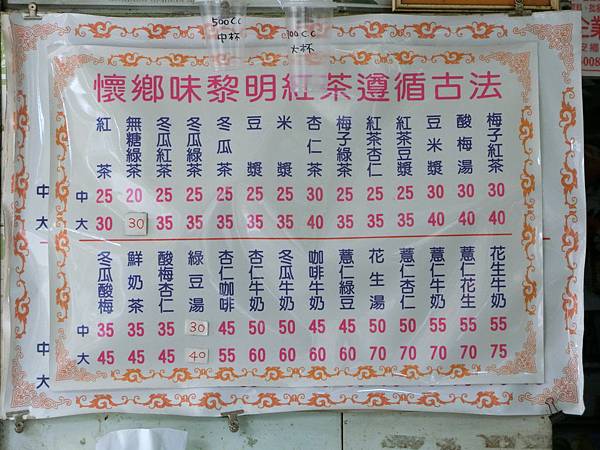 500cc
中杯
00cc
大杯
懷鄉味黎明紅茶遵循古法
紅茶 無糖綠茶 冬瓜紅茶 冬瓜綠茶 冬瓜茶 豆漿 米漿 杏仁茶 梅子綠茶 紅茶杏仁 紅茶豆漿 豆米漿 酸梅湯 梅子紅茶
中 中 25 20 25 25 25 25 25 30 25 25 25 30 30 30
大 大 30 30 35 35 35 35 35 40 35 35 35 40 40 40
冬瓜酸梅 鮮奶茶 酸梅杏仁 綠豆湯 杏仁咖啡 杏仁牛奶 冬瓜牛奶 咖啡牛奶 薏仁綠豆 花生湯 薏仁杏仁 薏仁牛奶 薏仁花生 花生牛奶
中 中 35 35 35 30 45 50 50 45 45 50 50 55 55 55
大 大 45 45 45 40 55 60 60 60 60 70 70 70 70 75